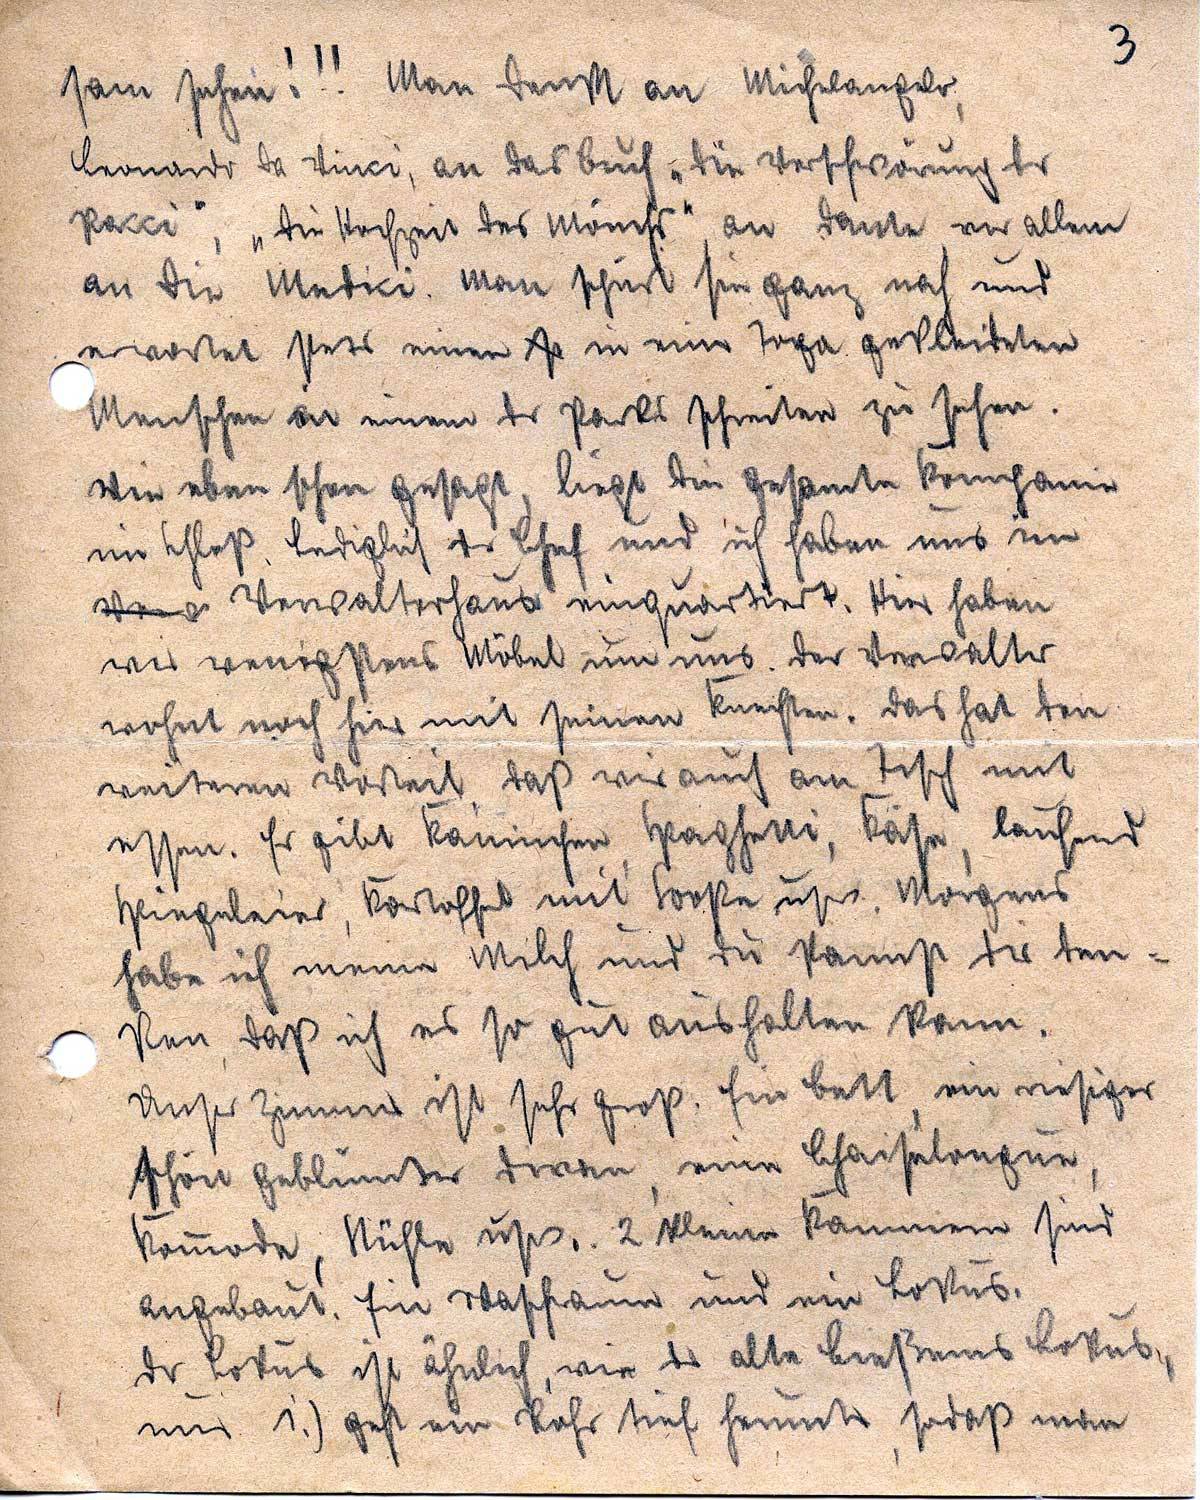 3
sam sehen!!! Man denkt an Michelangelo,
Leonardo da Vinci, an das Buch „die Verschwörung der
Pacci", „die Hochzeit des Mönchs", an Dante, vor allem
an die Medici. Man spürt sie ganz nah und
erwartet stets einen in eine Toga gekleideten
Menschen in einem der Parks schreiten zu sehen.
Wie eben schon gesagt, liegt die gesamte Kompanie
im Schloß. Lediglich der Chef und ich haben uns im
Verwalterhaus einquartiert. Hier haben
wir wenigstens Möbel um uns. Der Verwalter
wohnt noch hier mit seinen Knechten. Das hat den
weiteren Vorteil, daß wir auch am Tisch mit
essen. Er gibt Kaninchen, Spaghetti, Käse, laufend
Spiegeleier, Kartoffel mit Soße usw. Morgens
habe ich meine Milch und du kannst dir den-
ken, daß ich es so gut aushalten kann.
Unser Zimmer ist sehr groß. Ein Bett, ein riesiger
schön geblümter Divan, eine Chaiselongue,
Komode, Stühle usw.. 2 kleine Kammern sind
angebaut. Ein Waschraum und ein Lokus.
Der Lokus ist ähnlich, wie der alte Lokus,
nur 1.) geht ein Rohr tief herunter, sodaß man